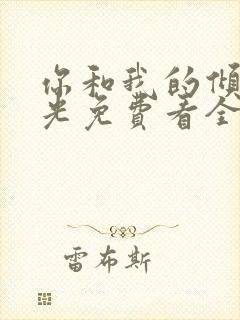 你和我的倾
光免费看全
雷布斯